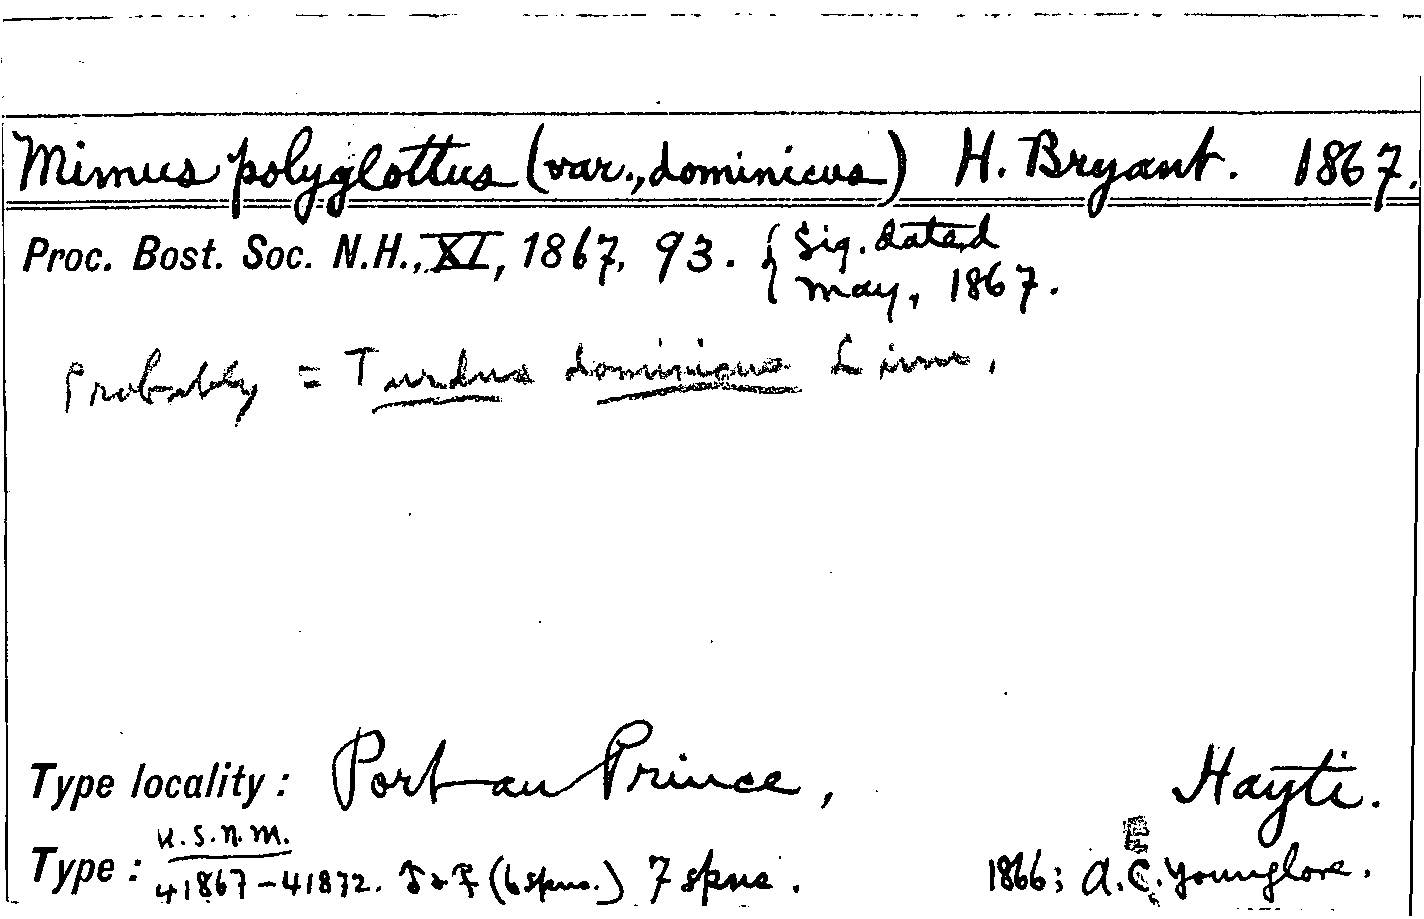 Mimus polyglottus (var., dominicus) H. Bryant. 1867.
Proc. Bost. Soc. N.H., XI, 1867, 93. { Sig. dated
May, 1867.
Probably = Turdus dominicus Linn.
Type locality : Port au Prince, Hayti.
U.S.N.M.
Type : 41867-41872. ♂ & ♀ (6 spms.) 7 spms. 1866; A. E. Younglove.